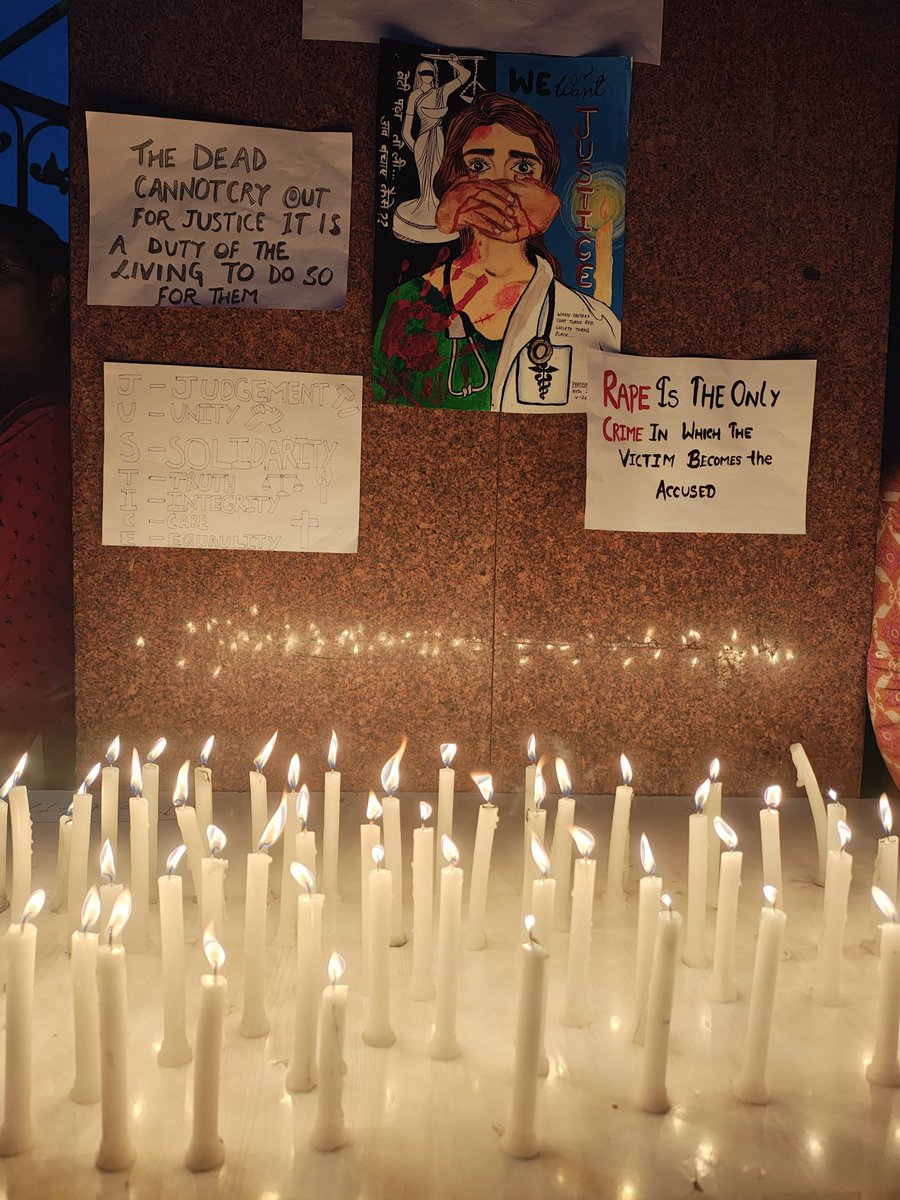 THE DEAD
CANNOT CRY OUT
FOR JUSTICE IT IS
A DUTY OF THE
LIVING TO DO SO
FOR THEM
बेटी पढ़ा तो ली...
अब बचाए कैसे??
WE Want
JUSTICE
WHEN DOCTORS
COAT TURNS RED
SOCIETY TURNS
BLACK...
J - JUDGEMENT
U - UNITY
S - SOLIDARITY
T - TRUTH
I - INTEGRITY
C - CARE
E - EQUAULITY
RAPE IS THE ONLY
CRIME IN WHICH THE
VICTIM BECOMES the
ACCUSED